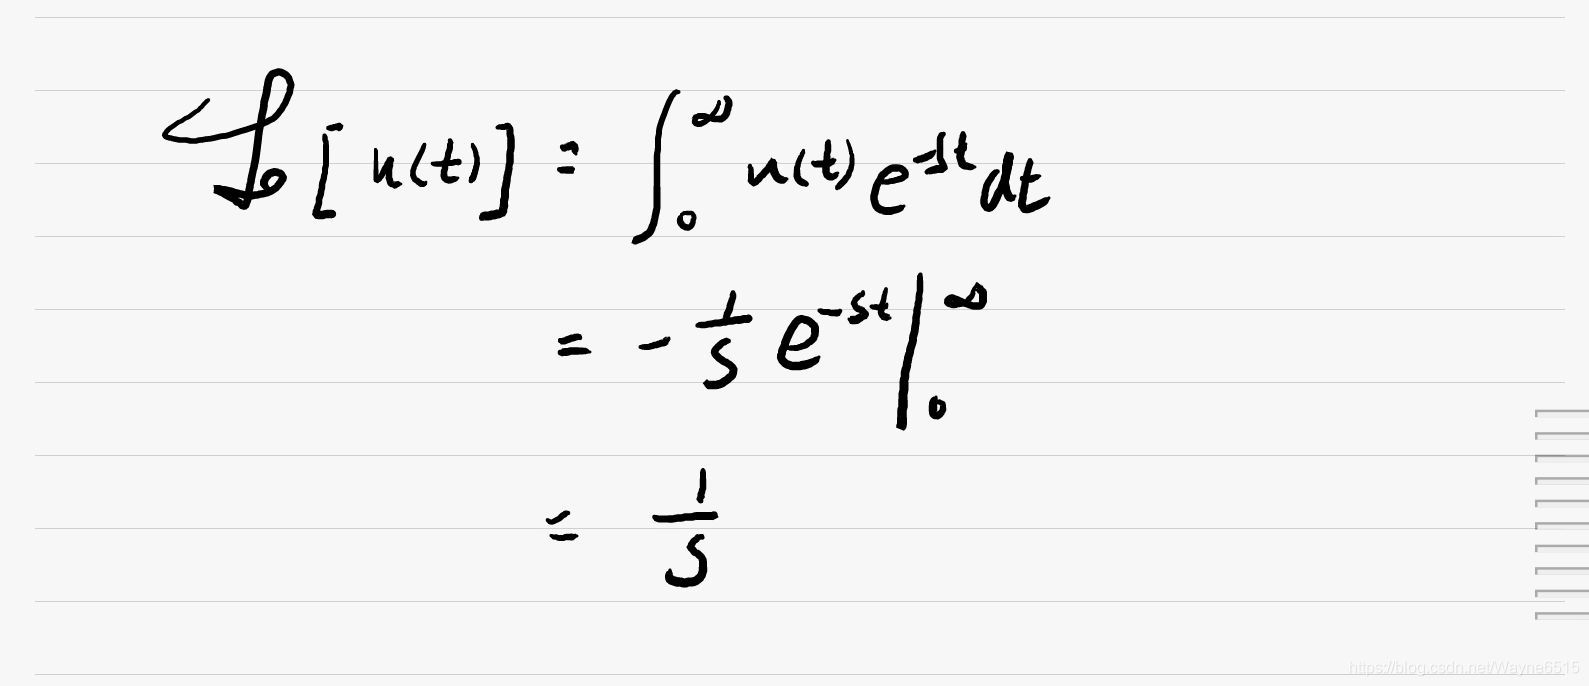 ℒ[u(t)] = ∫₀^∞ u(t) e^{-st} dt
= - 1/s e^{-st} |₀^∞
= 1/s
https://blog.csdn.net/Wayne6515